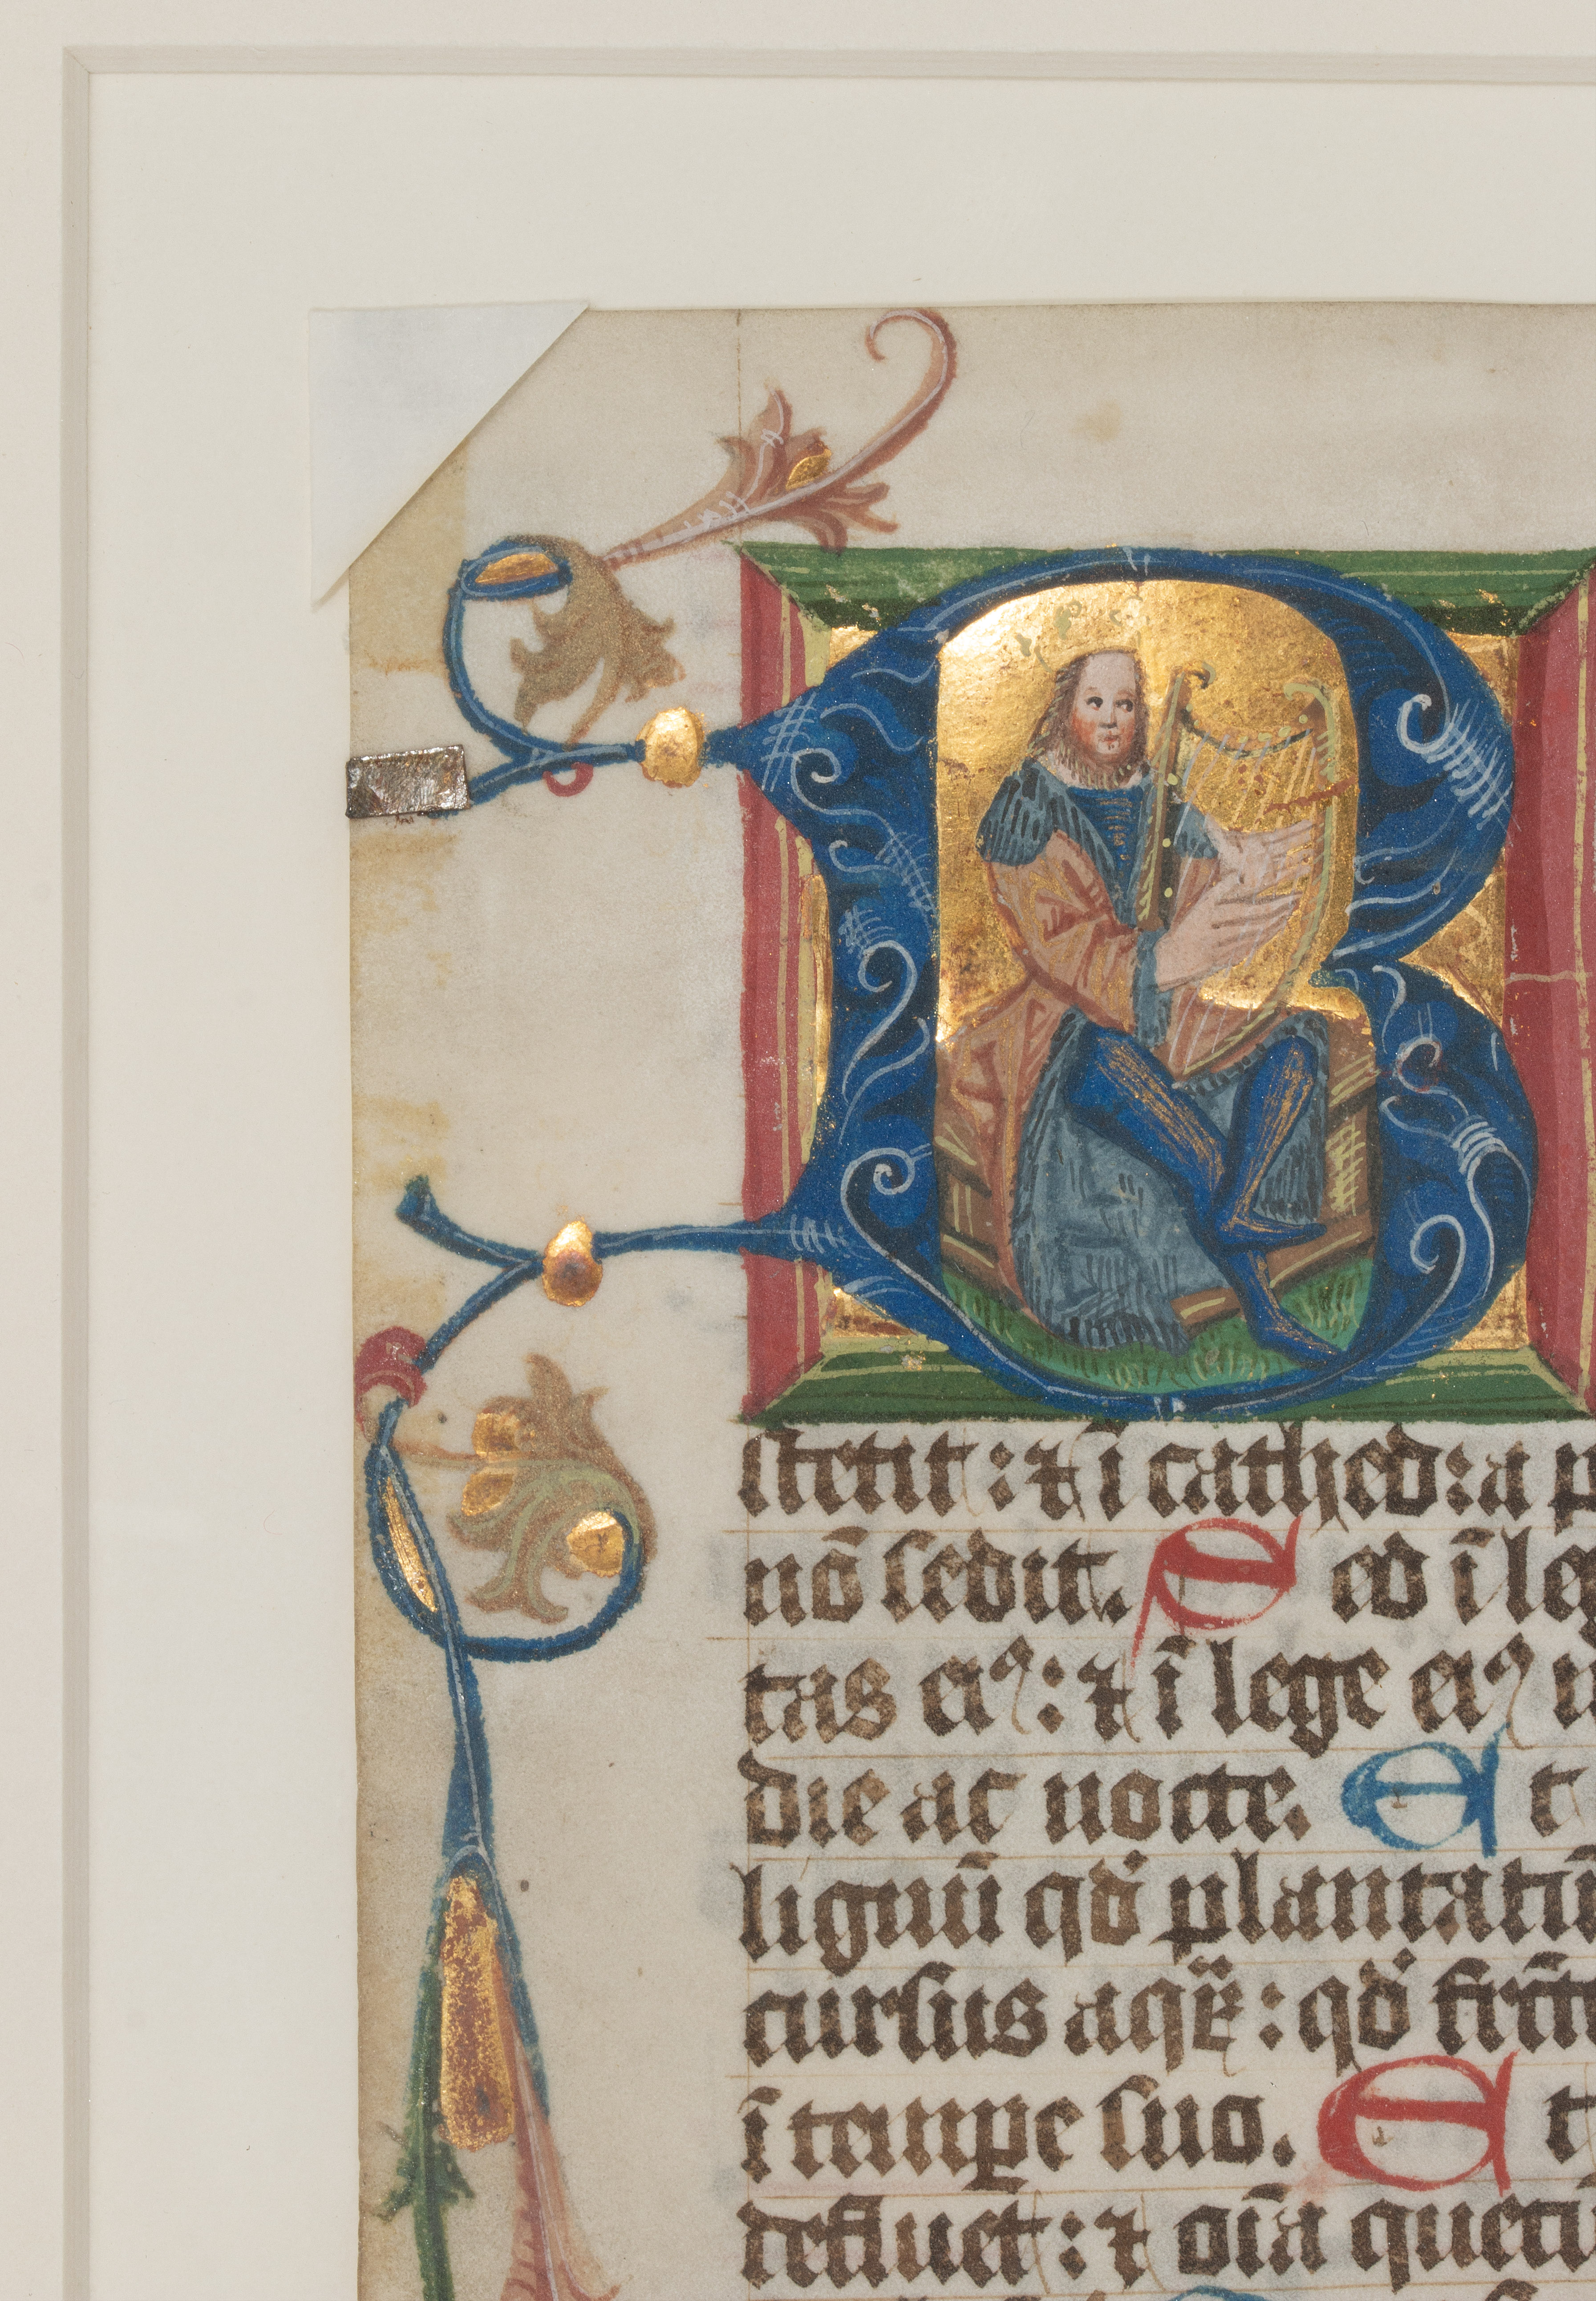 B
ſtetit: ⁊ ī cathedra p
nō ſedit. Sed ī le
tas eiꝰ: ⁊ ī lege eiꝰ
die ac nocte. Et
lignū qđ plantatū
curſus aqꝝ: qđ fruct
ī tempe ſuo. Et
defluet: ⁊ oīa quecū